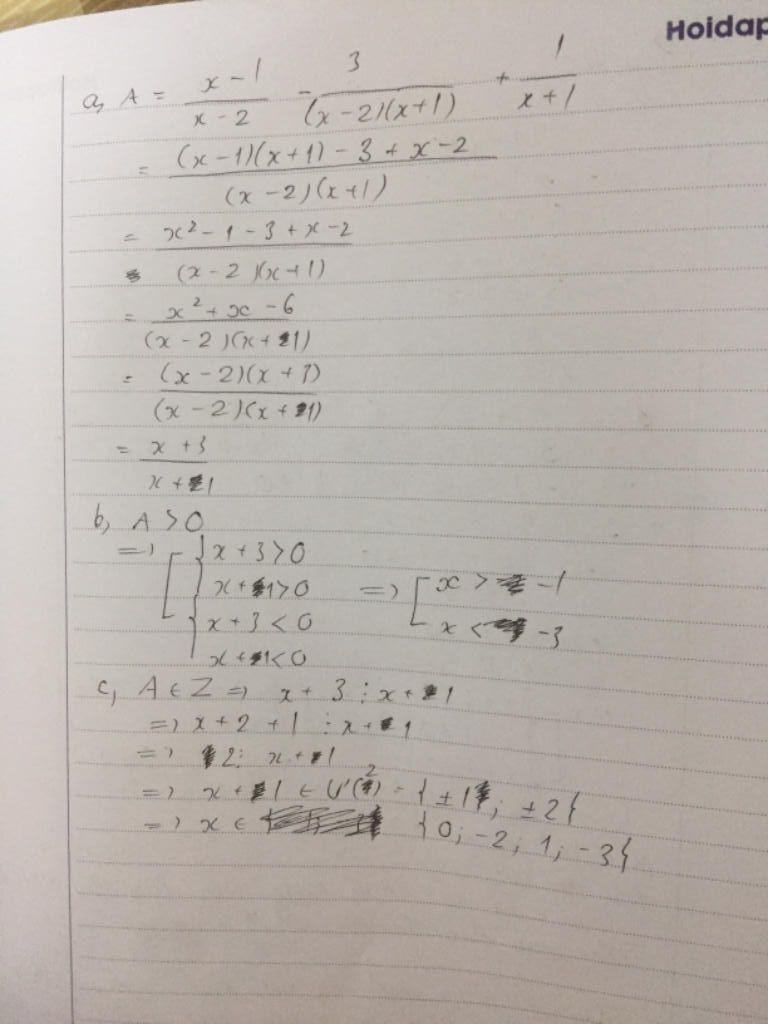 Hoidap
a, A = (x - 1)/(x - 2) - 3/((x - 2)(x + 1)) + 1/(x + 1)
= ((x - 1)(x + 1) - 3 + x - 2)/((x - 2)(x + 1))
= (x² - 1 - 3 + x - 2)/((x - 2)(x + 1))
= (x² + x - 6)/((x - 2)(x + 1))
= ((x - 2)(x + 3))/((x - 2)(x + 1))
= (x + 3)/(x + 1)
b, A > 0
=> [ { x + 3 > 0
x + 1 > 0 => [ x > -1
{ x + 3 < 0 x < -3
x + 1 < 0
c, A ∈ Z => x + 3 ⋮ x + 1
=> x + 2 + 1 ⋮ x + 1
=> 2 ⋮ x + 1
=> x + 1 ∈ Ư(2) = { ±1; ±2 }
=> x ∈ { 0; -2; 1; -3 }